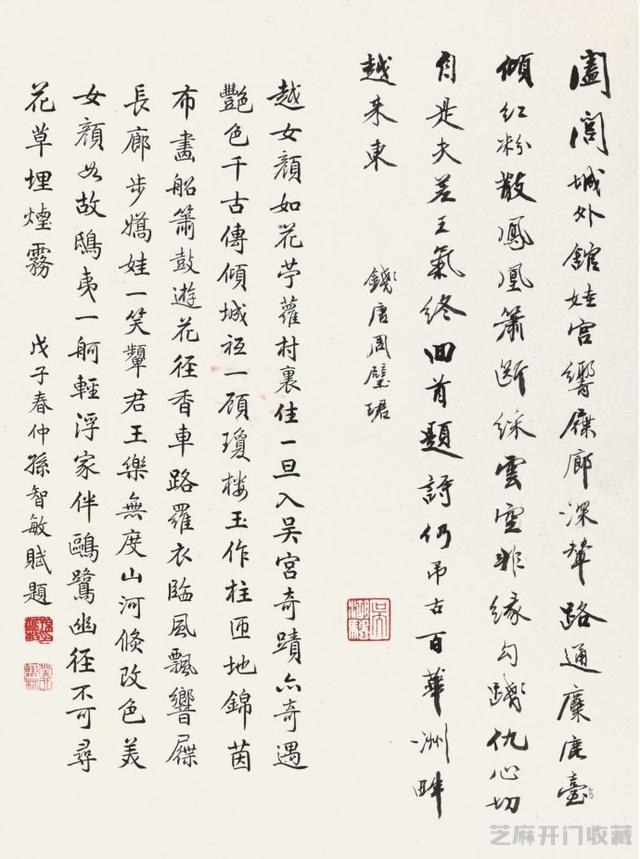 闔閭城外館娃宮響屧廊深輦路通麋鹿臺
傾紅粉散鳳凰簫斷綵雲空非緣勾踐仇心切
自是夫差王氣終回首題詩仍弔古百華洲畔
越來東
錢唐周璧珺
越女顏如花苧蘿村裏住一旦入吴宮奇蹟亦奇遇
艷色千古傳傾城祗一顧瓊樓玉作柱匝地錦茵
布畫船簫鼓遊花徑香車路羅衣臨風飄響屧
長廊步嬌娃一笑顰君王樂無度山河倏改色美
女顏如故鴟夷一舸輕浮家伴鷗鷺幽徑不可尋
花草埋煙霧
戊子春仲孫智敏賦題
芝麻开门收藏